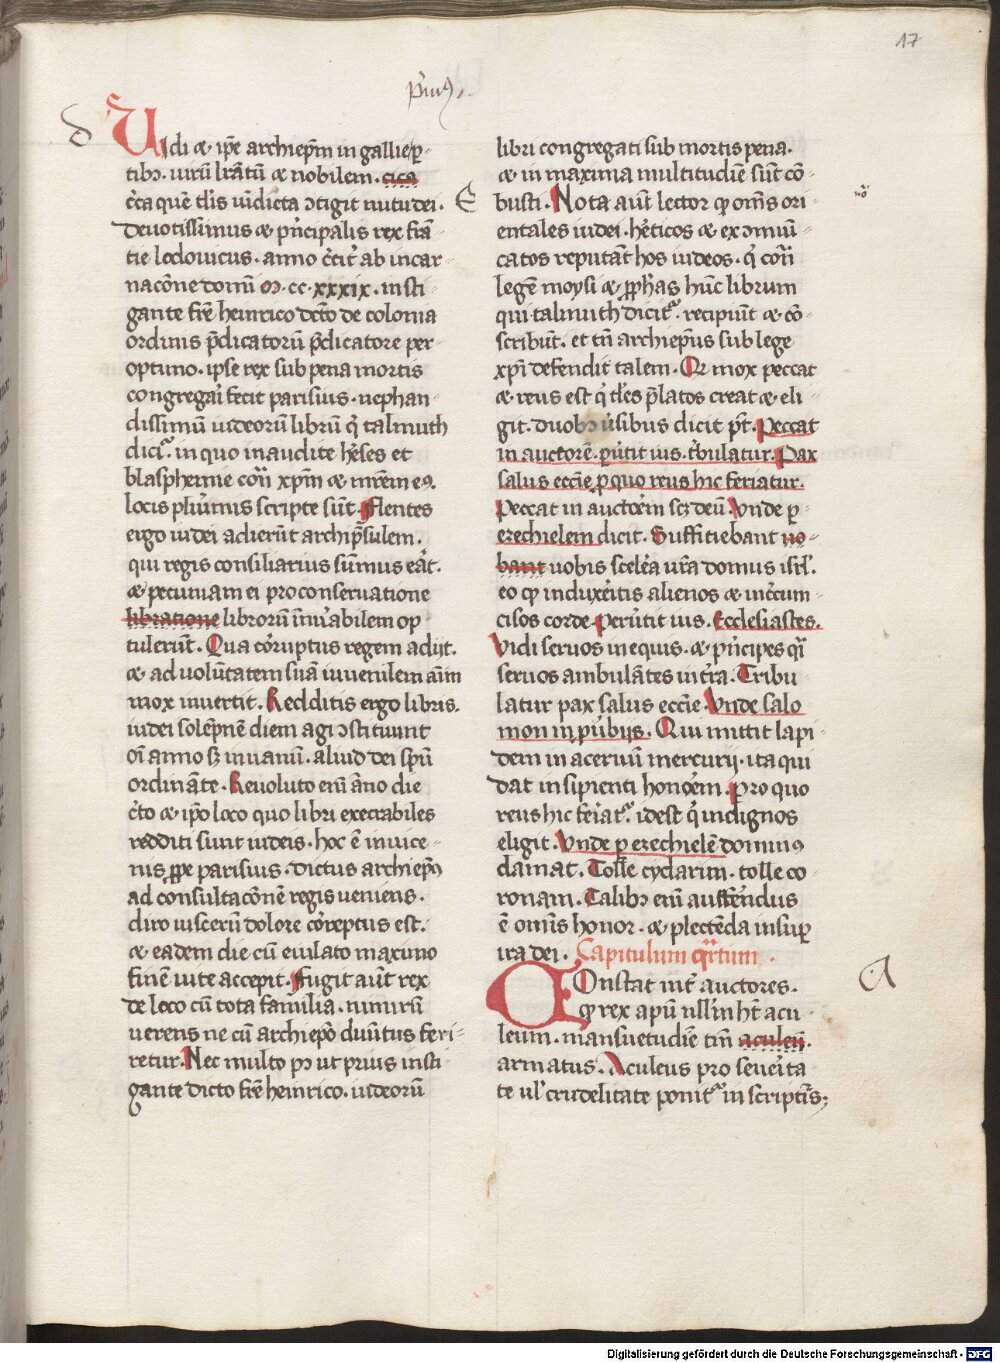 17
pri9.
d
Uidi ⁊ ip̄e archiep̄m in gallie p̱
tib3. uirū lr̄atū ⁊ nobilem. cica
c̄ca quē tal̄is uīdicta ↄtigit nutu dei.
Deuotissimus ⁊ pͥncipalis rex frā
tie lodouicus. anno c̄cit̄ ab incar
nac̄one domī M. cc. xxxix. insti
gante fr̄e heinrico dc̄to de colonia
ordinis p̄dicatorū p̄dicatore per
optimo. ipse rex sub pena mortis
congregai fecit parisius. nephan
dissimū iudeorū librū q̄ talmuth
diciᷓ. in quo inaudite h̄eses et
blasphemie cōr xp̄m ⁊ mr̄em e9.
locis pluͥmis scripte sūt. Flentes
ergo iudei adierūt archip̄sulem.
qui regis consiliarius sūmus eāt.
⁊ pecuniam ei pro conseruatione
libratione librorū īnūabilem op
tulerūt. Qua cōruptus regem adijt.
⁊ ad uolūtatem suā iuuenilem aīm
mox inuertit. Redditis ergo libris.
iudei solēpnē diem agi ↄstituunt
oī anno sȝ in uanū. aliud dei sp̄ū
ordināte. Reuoluto enī āno die
c̄to ⁊ ip̄o loco quo libri execrabiles
redditi sunt iudeis. hoc ē in uice
nis ꝓpe parisius. dictus archiep̄9
ad consultac̄onē regis ueniens.
diro uiscerū dolore cōreptus est.
⁊ eadem die cū eiulato maximo
finē uite accepit. Fugit aūt rex
de loco cū tota familia. nimirū
uerens ne cū archiep̄o diuīitus feri
retur. Nec multo pꝰ ut prius insti
gante dicto fr̄e heinrico. iudeorū
libri congregati sub mortis pena.
⁊ in maxima multitudīe sūt cō
E
busti. Nota aūt lector ꝙ om̄s ori
no͡
entales iudei. h̄eticos ⁊ exↄmūi
catos reputāt hos iudeos. q̄ cōr
legē moysi ⁊ ꝓph̄as hūc librum
qui talmuth diciᷓ. recipiūt ⁊ cō
scribūt. et tn̄ archiep̄us sub lege
xp̄i defendit talem. Qr̄ mox peccat
⁊ reus est q̄ tal̄es p̄latos creat ⁊ eli
git. duob3 ūsibus dicit pꝫt. Peccat
in auctorē. pūtit ius. tͥbulatur. Pax
salus ecc̄ie ꝑ quo reus hic feriatur.
Peccat in auctōrē scȝ deū. Vnde p̱
ezechielem dicit. Suffitiebant uo
bant uobis scelēa ur̄a domus isrl̄.
eo ꝙ induxēitis alienos ⁊ inc̄cum
cisos corde. Perūtit ius. Ecclesiastes.
Vidi seruos in equis. ⁊ pͥncipes q̄si
seruos ambulātes in tr̄a. Tribu
latur pax salus ecc̄ie. Vnde salo
mon in ꝓūbijs. Qui mittit lapi
dem in aceruū mercurij. ita qui
dat insipienti honōrem. Pro quo
reus hic feriatᷓ. idest q̄ indignos
eligit. Vnde p̱ ezechielē dominꝰ
clamat. Tolle cydarim. tolle co
ronam. Talib3 enī auferēdus
ē om̄is honor. ⁊ plectēda insup̱
ira dei. Capitulum qᷓrtum.
A
Constat int̄ auctores.
ꝙ rex apū nullū h̄t acu
leum. mansuetudīe tm̄ aculeū.
armatus. Aculeus pro seuēita
te ul̄ crudelitate ponitᷓ in scriptͥs;
Digitalisierung gefördert durch die Deutsche Forschungsgemeinschaft - DFG